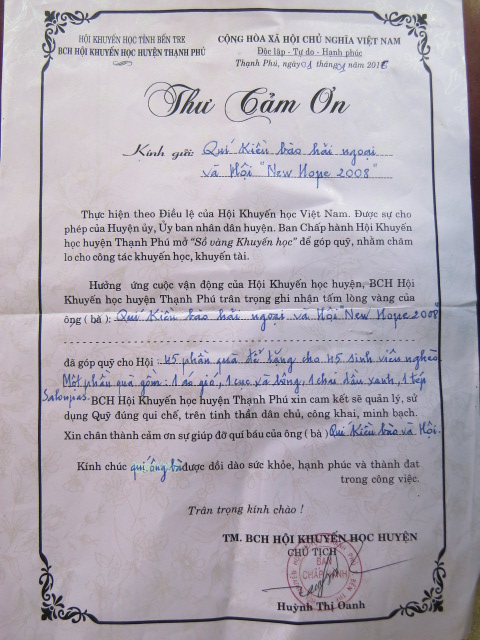 HỘI KHUYẾN HỌC TỈNH BẾN TRE
BCH HỘI KHUYẾN HỌC HUYỆN THẠNH PHÚ
CỘNG HÒA XÃ HỘI CHỦ NGHĨA VIỆT NAM
Độc lập - Tự do - Hạnh phúc
Thạnh Phú, ngày tháng năm 201
Thư Cảm Ơn
Kính gửi: Quí Kiều bào hải ngoại
và Hội "New Hope 2008"
Thực hiện theo Điều lệ của Hội Khuyến học Việt Nam. Được sự cho
phép của Huyện ủy, Ủy ban nhân dân huyện. Ban Chấp hành Hội Khuyến
học huyện Thạnh Phú mở "Sổ vàng Khuyến học" để góp quỹ, nhằm chăm
lo cho công tác khuyến học, khuyến tài.
Hưởng ứng cuộc vận động của Hội Khuyến học huyện, BCH Hội
Khuyến học huyện Thạnh Phú trân trọng ghi nhận tấm lòng vàng của
ông ( bà ): Quí Kiều bào hải ngoại và Hội "New Hope 2008"
đã góp quỹ cho Hội : 45 phần quà để tặng cho 45 sinh viên nghèo
Một phần quà gồm : 1 áo gió, 1 cục xà bông, 1 chai dầu xanh, 1 tép
Salonpas. BCH Hội Khuyến học huyện Thạnh Phú xin cam kết sẽ quản lý, sử
dụng Quỹ đúng qui chế, trên tinh thần dân chủ, công khai, minh bạch.
Xin chân thành cảm ơn sự giúp đỡ quí báu của ông ( bà ) Quí Kiều bào và Hội.
Kính chúc quí ông bà được dồi dào sức khỏe, hạnh phúc và thành đạt
trong công việc.
Trân trọng kính chào !
TM. BCH HỘI KHUYẾN HỌC HUYỆN
CHỦ TỊCH
BAN
CHẤP HÀNH
Huỳnh Thị Oanh